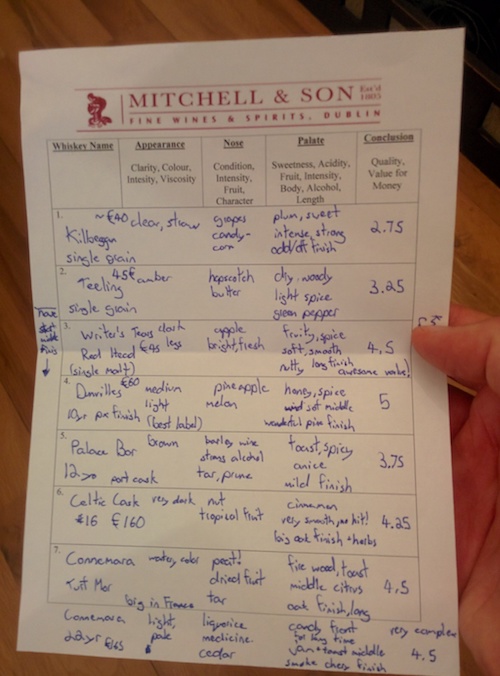 MITCHELL & SON Est'd 1805
FINE WINES & SPIRITS, DUBLIN
Whiskey Name Appearance Nose Palate Conclusion
Clarity, Colour, Intesity, Viscosity
Condition, Intensity, Fruit, Character
Sweetness, Acidity, Fruit, Intensity, Body, Alcohol, Length
Quality, Value for Money
1.
~€40 clear, straw grapes plum, sweet
Kilbeggan candy- intense, strong 2.75
single grain corn odd/off finish
2.
45€ amber hopscotch dry woody
Teeling butter light spice 3.25
single grain green pepper
3.
Writer's Tears dark apple fruity, spice
Red Head €45 legs bright, fresh soft, smooth 4,5
(single malt) nutty long finish awesome value!
4.
Dunvilles €60 medium pineapple honey, spice
light melon soft middle 5
10yr px finish (best label) wonderful finish
5.
Palace Bar brown barley wine toast, spicy
strong alcohol anice 3.75
12yo port cask tar, prune mild finish
6.
Celtic Cask very dark nut cinnamen
#16 €160 tropical fruit very smooth, hit! 4.25
big oak finish + herbs
7.
Connemara watery, color peat! fire wood, toast
Turf Mor dried fruit middle citrus 4,5
big in France tar oak finish, long
Connemara light, liquorice candy front very complex
22yr €165 pale medicine for long time
cedar jam + toast middle 4.5
smoke cherry finish